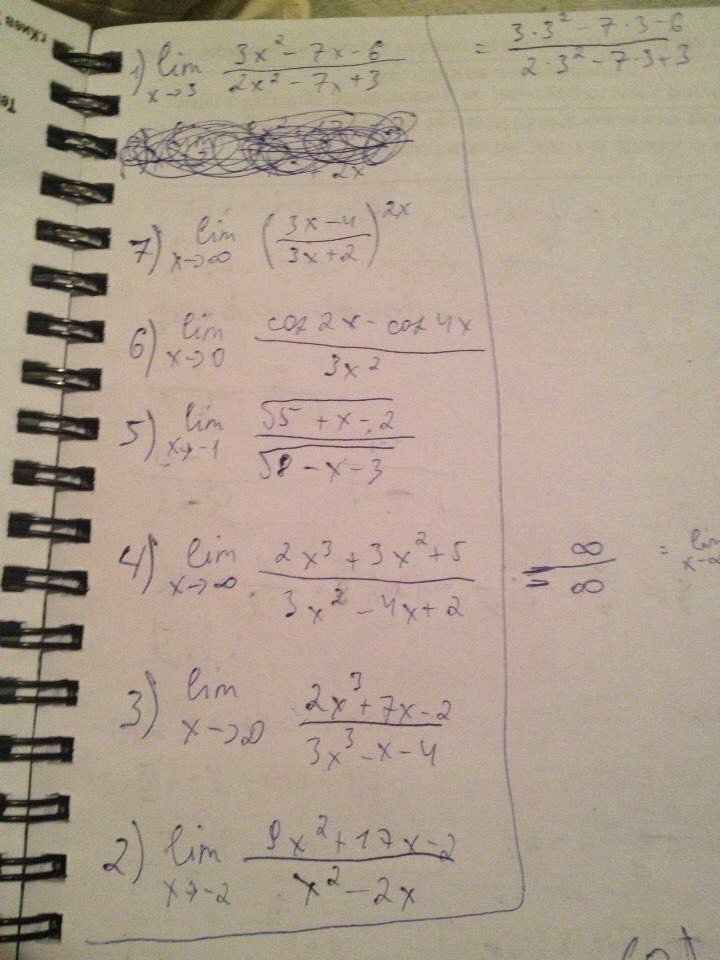 г Киев
Те
1) lim x→3 (3x² - 7x - 6)/(2x² - 7x + 3) = (3·3² - 7·3 - 6)/(2·3² - 7·3 + 3)
x² + 2x
7) lim x→∞ ((3x - 4)/(3x + 2))^2x
6) lim x→0 (cos 2x - cos 4x)/(3x²)
5) lim x→-1 √(5 + x - 2)/√(8 - x - 3)
4) lim x→∞ (2x³ + 3x² + 5)/(3x² - 4x + 2) = ∞/∞ = lim
3) lim x→∞ (2x³ + 7x - 2)/(3x³ - x - 4)
2) lim x→-2 (9x² + 17x - 2)/(x² - 2x)